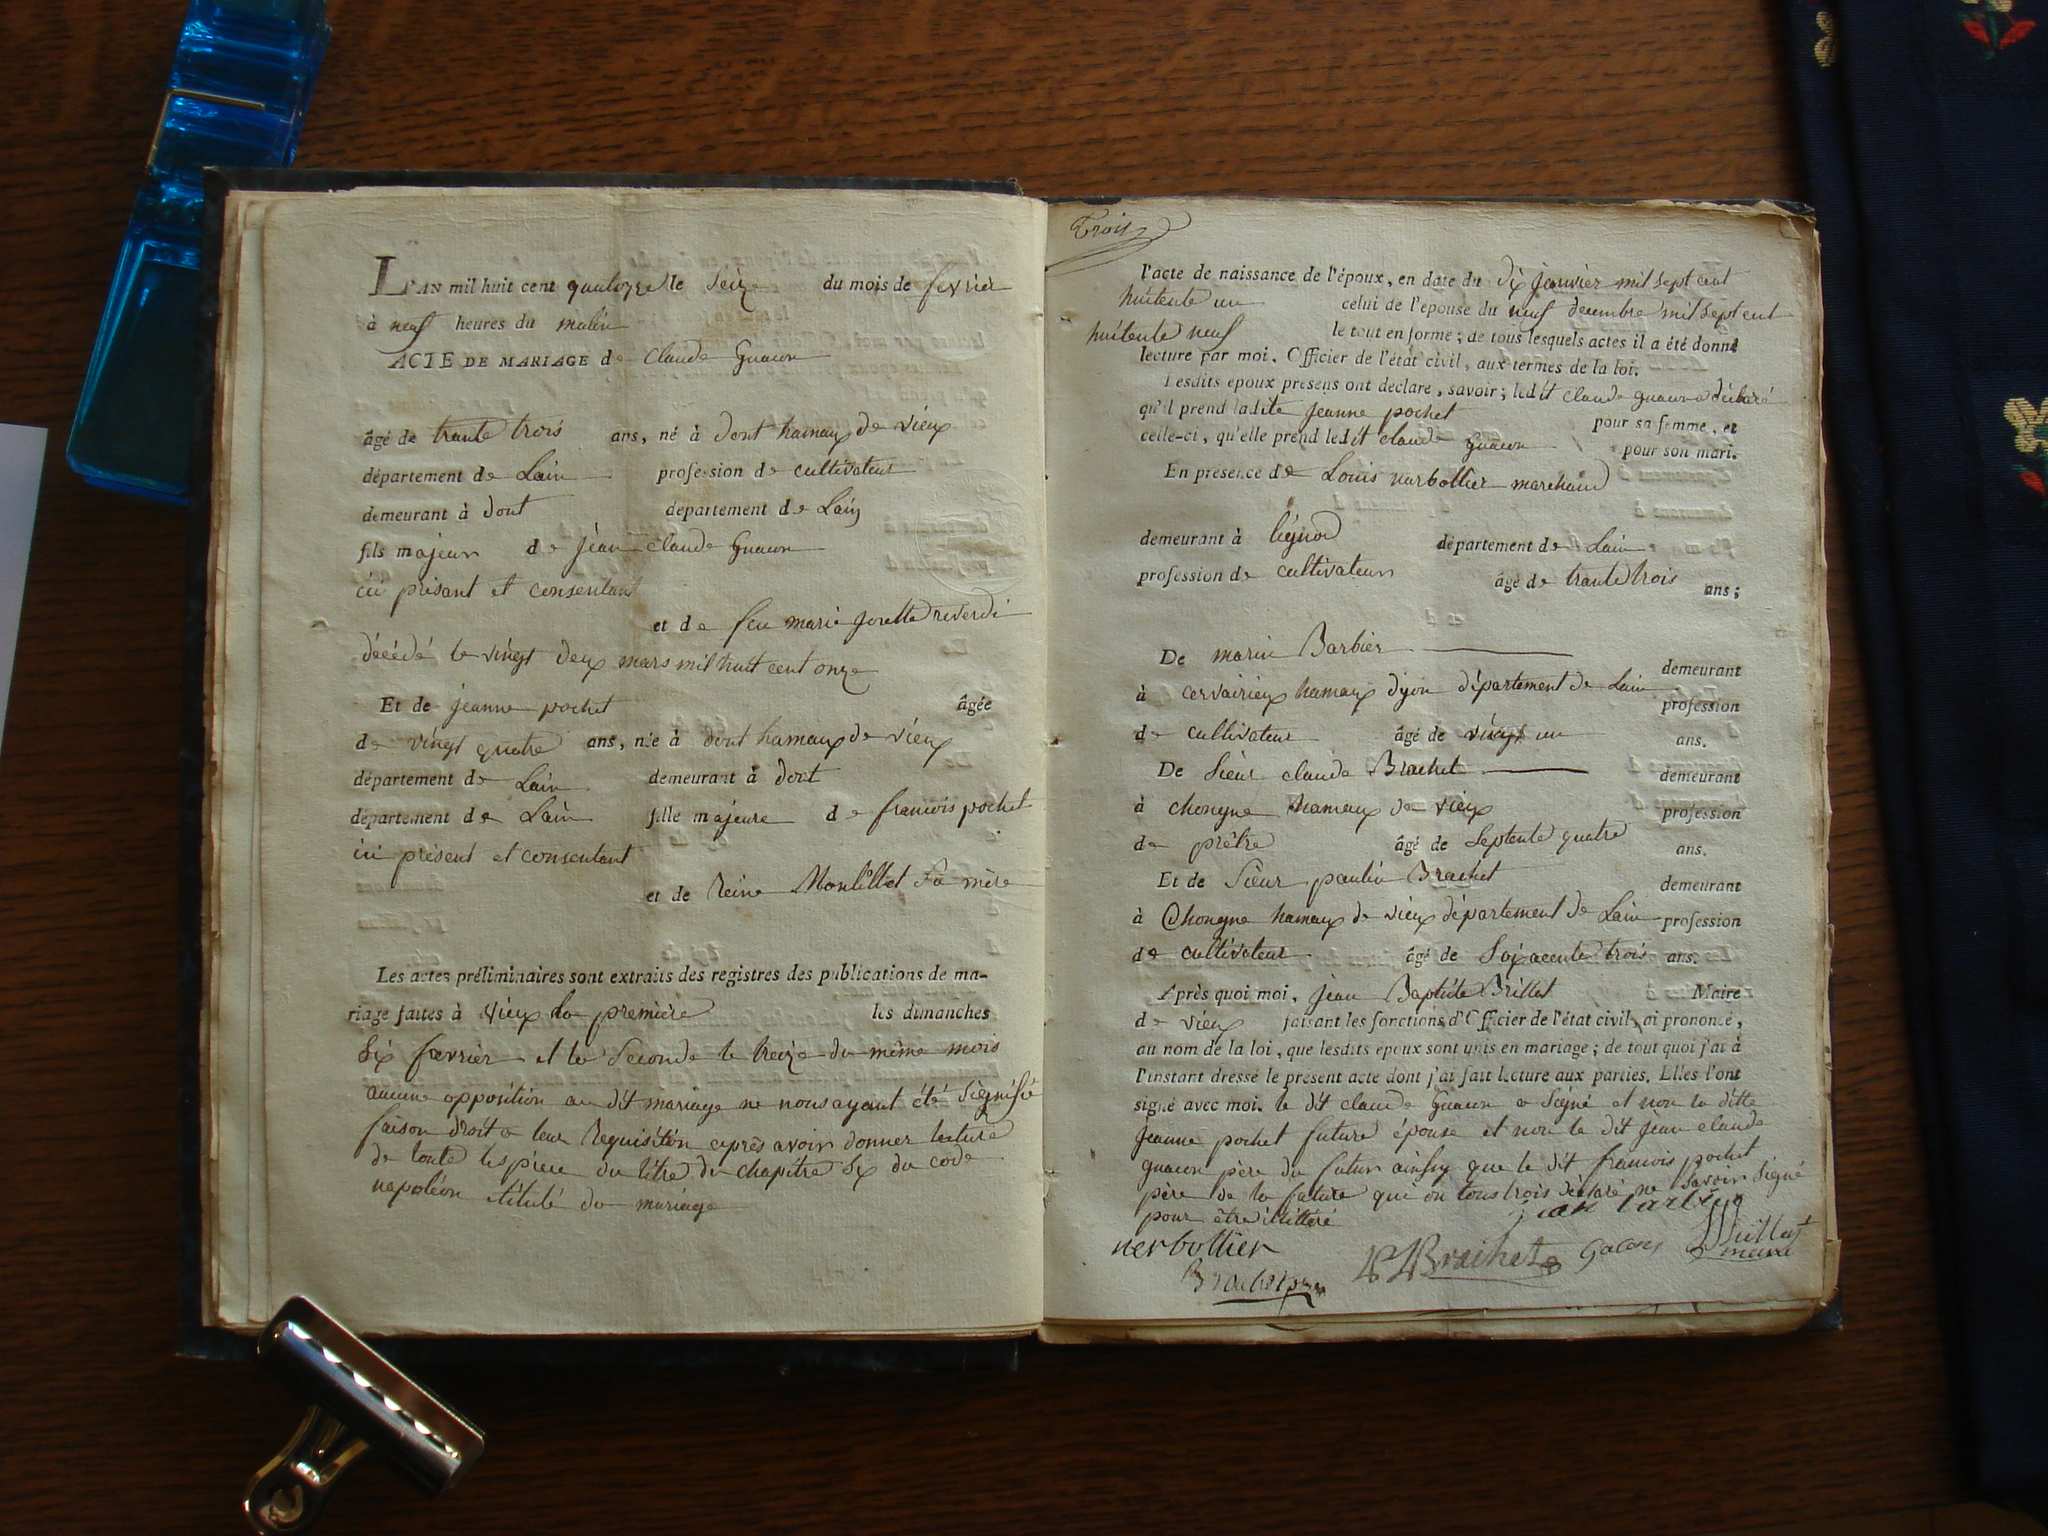 L'AN mil huit cent quatorze le Seize du mois de fevrier
à neuf heures du matin
ACTE DE MARIAGE de Claude Guacon
âgé de trante trois ans, né à dont hamaux de vieux
département de Lain profession de cultivateur
demeurant à dont département de Lain
fils majeur de jean claude Guacon
ici présant et consentant
et de feu marie gorette reverdi
décédé le vingt deux mars mil huit cent onze
Et de jeanne pochet âgée
de vingt quatre ans, née à dont hamaux de vieux
département de Lain demeurant à dont
département de Lain fille majeure de francois pochet
ici présent et consentant
et de Reine Montillet Sa mère
Les actes préliminaires sont extraits des registres des publications de ma-
riage faites à vieux la première les dimanches
Six faevrier et la Seconde le treize du même mois
aucune opposition au dit mariage ne nous ayant été Siegnifié
faison droit a leur Requisition après avoir donner lecture
de toute les piece du titre du chapitre Six du code
napoléon etitulé du mariage
Trois
l'acte de naissance de l'époux, en date du dix janvier mil sept cent
huitente un celui de l'épouse du neuf decembre mil sept cent
huitente neuf le tout en forme; de tous lesquels actes il a été donné
lecture par moi, Officier de l'état civil, aux termes de la loi.
Lesdits époux présens ont déclaré, savoir; ledit claude guacon a déclaré
qu'il prend ladite Jeanne pochet pour sa femme, et
celle-ci, qu'elle prend ledit claude guacon pour son mari.
En présence de Louis narbollier marchand
demeurant à légnod département de Lain
profession de cultivateur âgé de trante trois ans;
De marin Barbier demeurant
à cervairieux hamaux dyon département de Lain profession
de cultivateur âgé de vingt un ans.
De Sieur claude Brachet demeurant
à chongne hamaux de vieux profession
de prêtre âgé de Septente quatre ans.
Et de Sieur paulin Brachet demeurant
à Chongne hamaux de vieux département de Lain profession
de cultivateur âgé de Soixacente trois ans.
Après quoi moi, jean Baptiste Brillat Maire
de vieux faisant les fonctions d'Officier de l'état civil, ai prononcé,
au nom de la loi, que lesdits époux sont unis en mariage; de tout quoi j'ai à
l'instant dressé le présent acte dont j'ai fait lecture aux parties. Elles l'ont
signé avec moi. le dit claude Guacon aSégné et non la ditte
Jeanne pochet future épouse et non le dit jean claude
guacon père du futur ainsy que le dit francois pochet
père de la future qui on tous trois déclaré ne Savoir Signé
pour être illitteré
nerbollier
Brachet
Brachet
Gacon
Brillat
meire